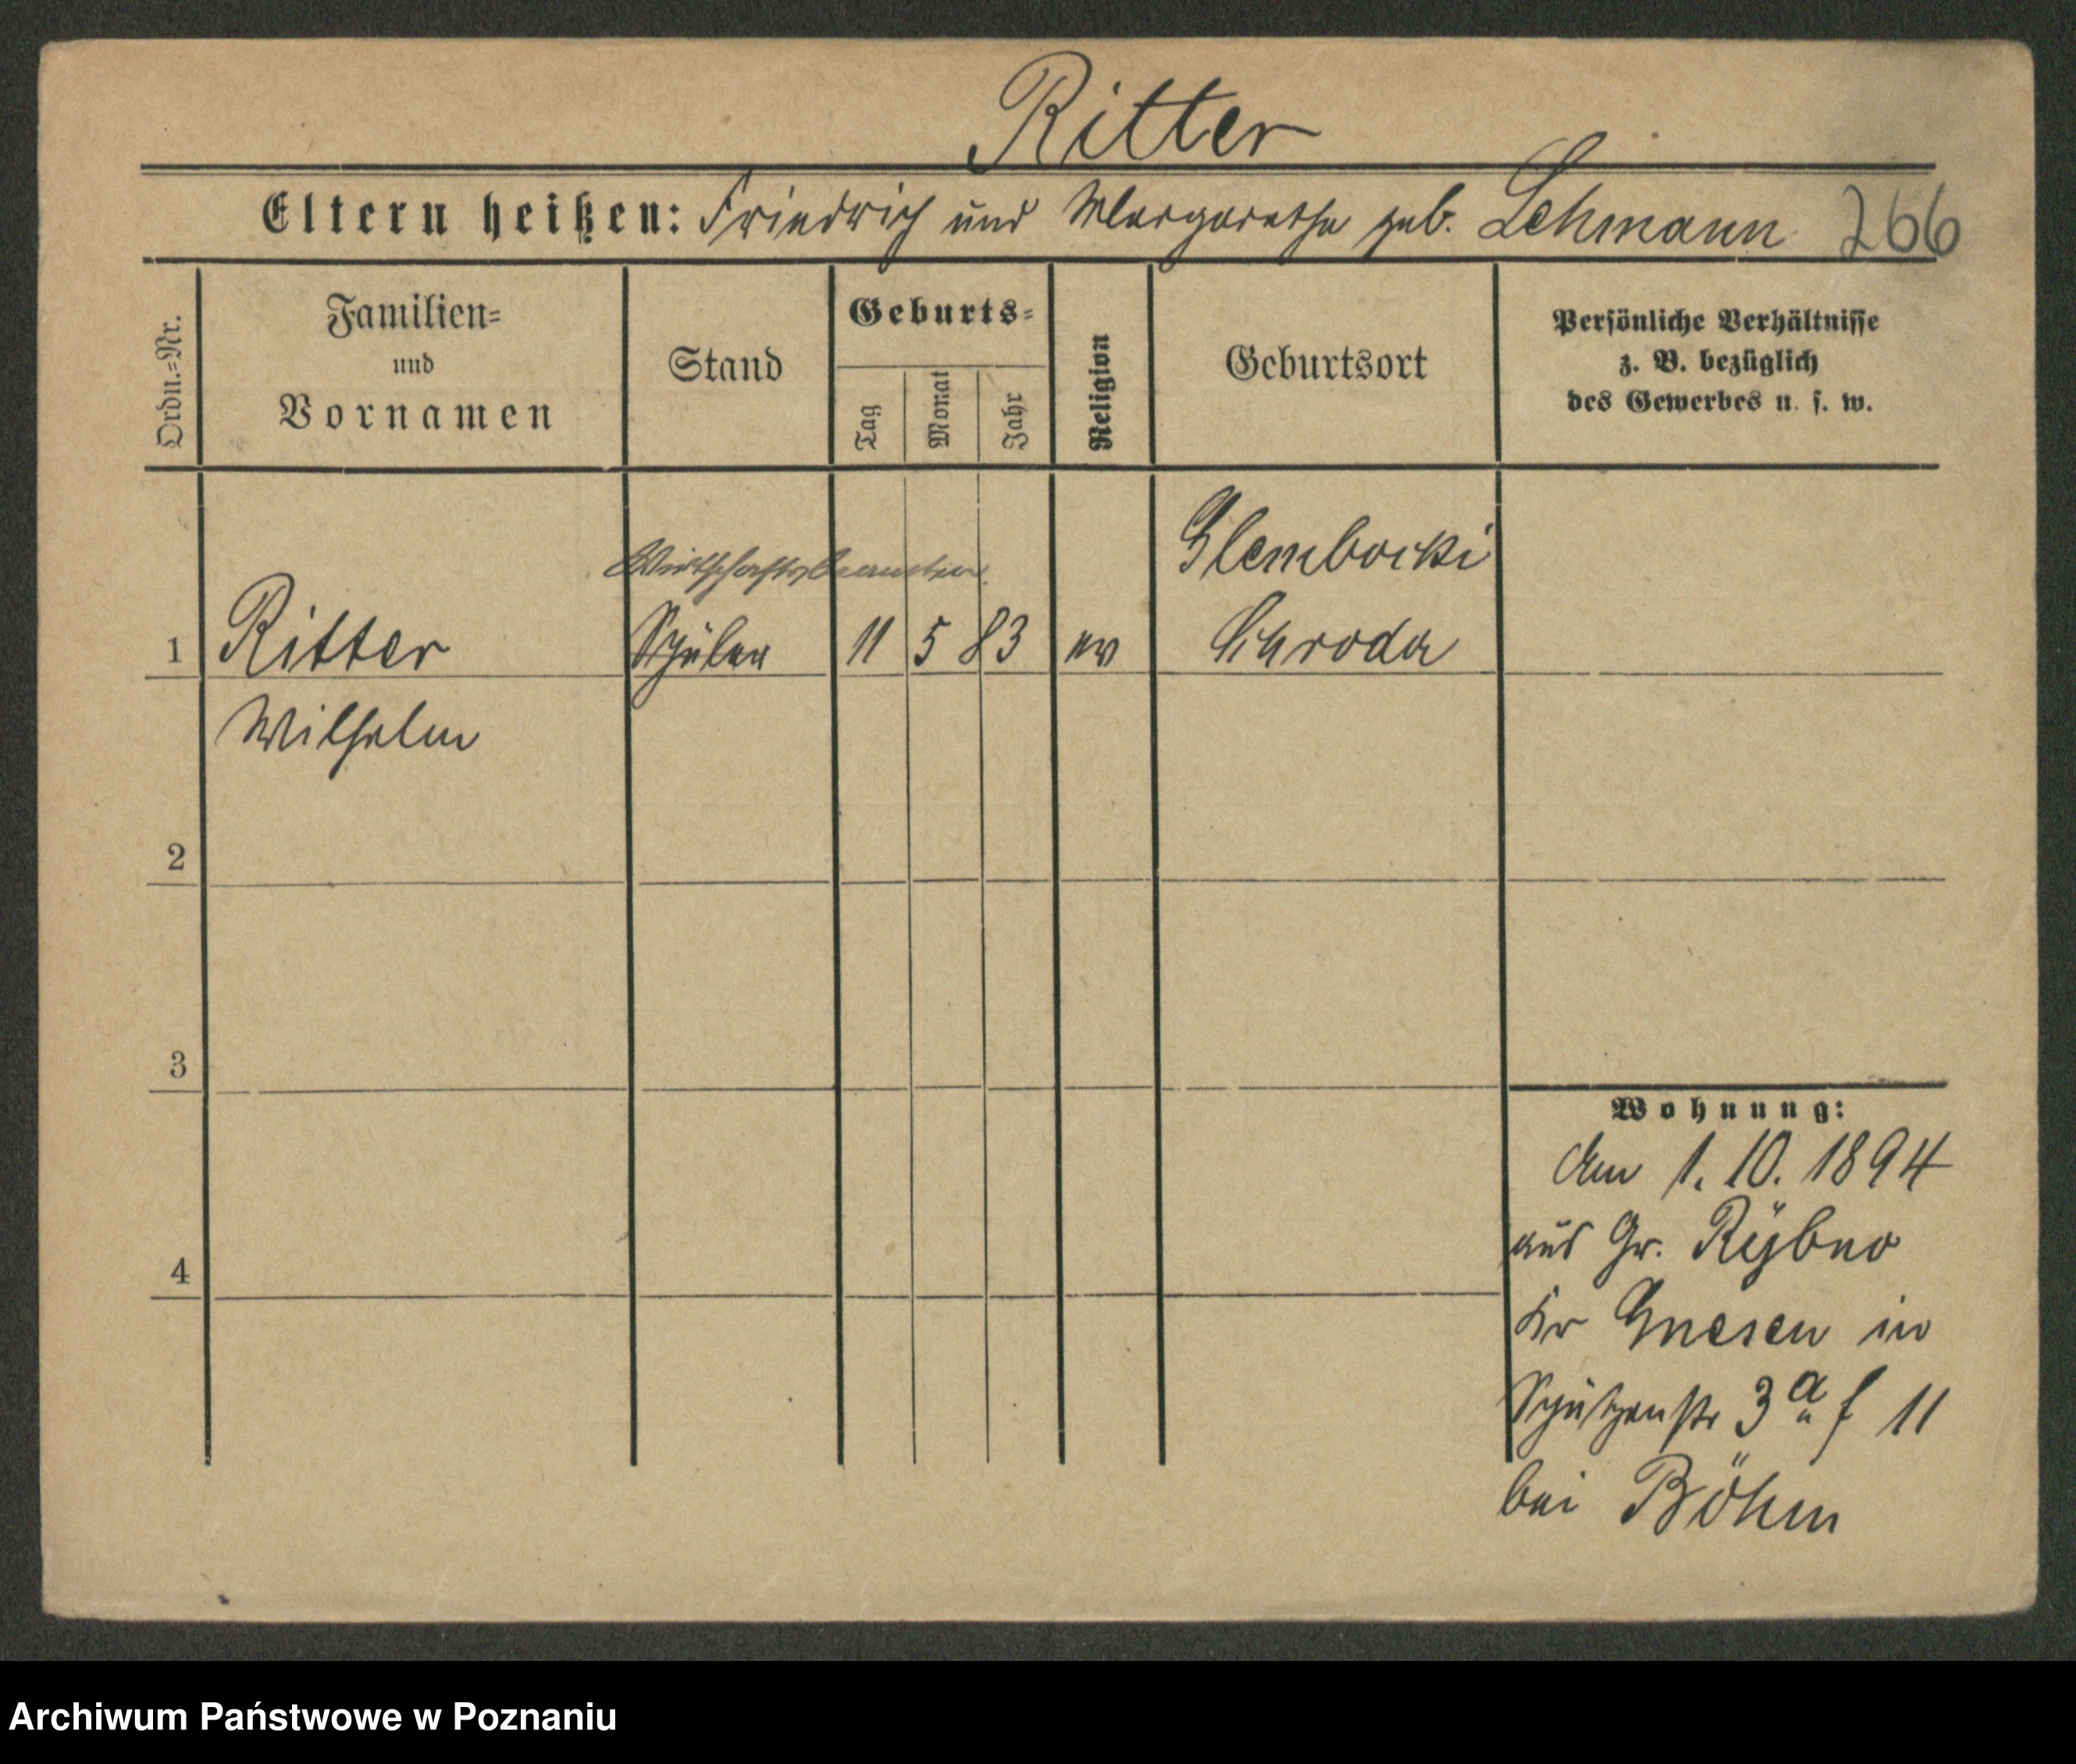 Ritter
Eltern heißen: Friedrich und Margarethe geb. Lehmann 266
Ordn.-Nr.
Familien-
und
Vornamen
Stand
Geburts-
Tag
Monat
Jahr
Religion
Geburtsort
Persönliche Verhältnisse
z. B. bezüglich
des Gewerbes u. s. w.
Wirthschaftsbeamter
Glembocki
1 Ritter Schüler 11 5 83 ev Schroda
Wilhelm
2
3
4
Wohnung:
Am 1. 10. 1894
aus Gr. Rÿbno
Kr Gnesen in
Schützenstr 3a f 11
bei Böhm
Archiwum Państwowe w Poznaniu